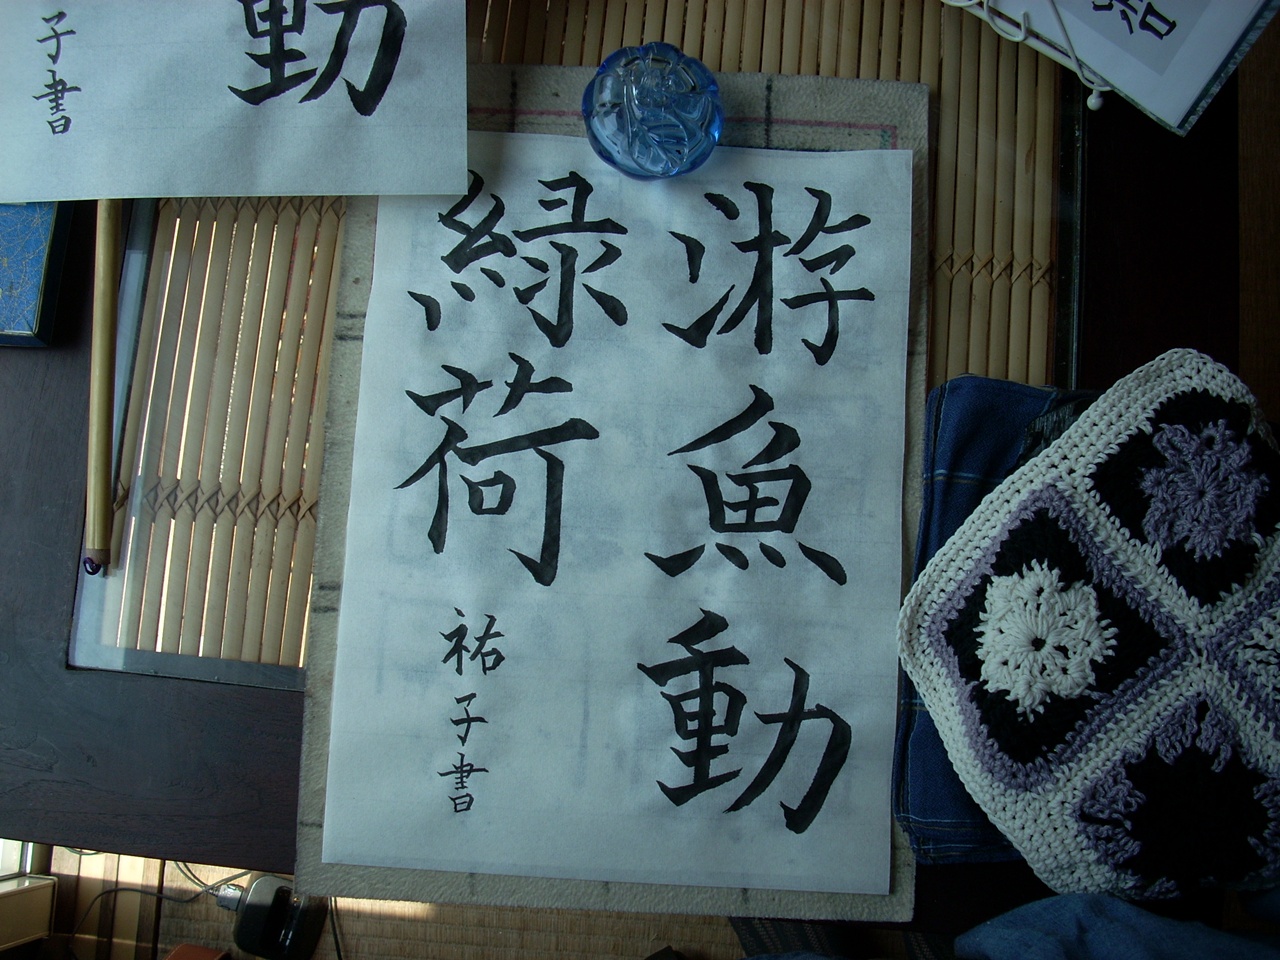 游魚動
緑荷
祐子書
動
子書